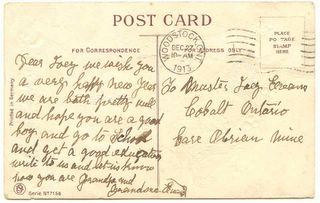 POST CARD
FOR CORRESPONDENCE
FOR ADDRESS ONLY
WOODSTOCK
DEC 27
10-AM
1913
PLACE
POSTAGE
STAMP
HERE
Dear Joey we wish you
a very happy New Year
we are both pretty well
and hope you are a good
boy and go to School
and get a good education
write to us and let us know
how you are Grandpa and
Grandma
To Master Joey
Cobalt Ontario
Care Obrian Mine
Printed in Germany
Serie No 7158